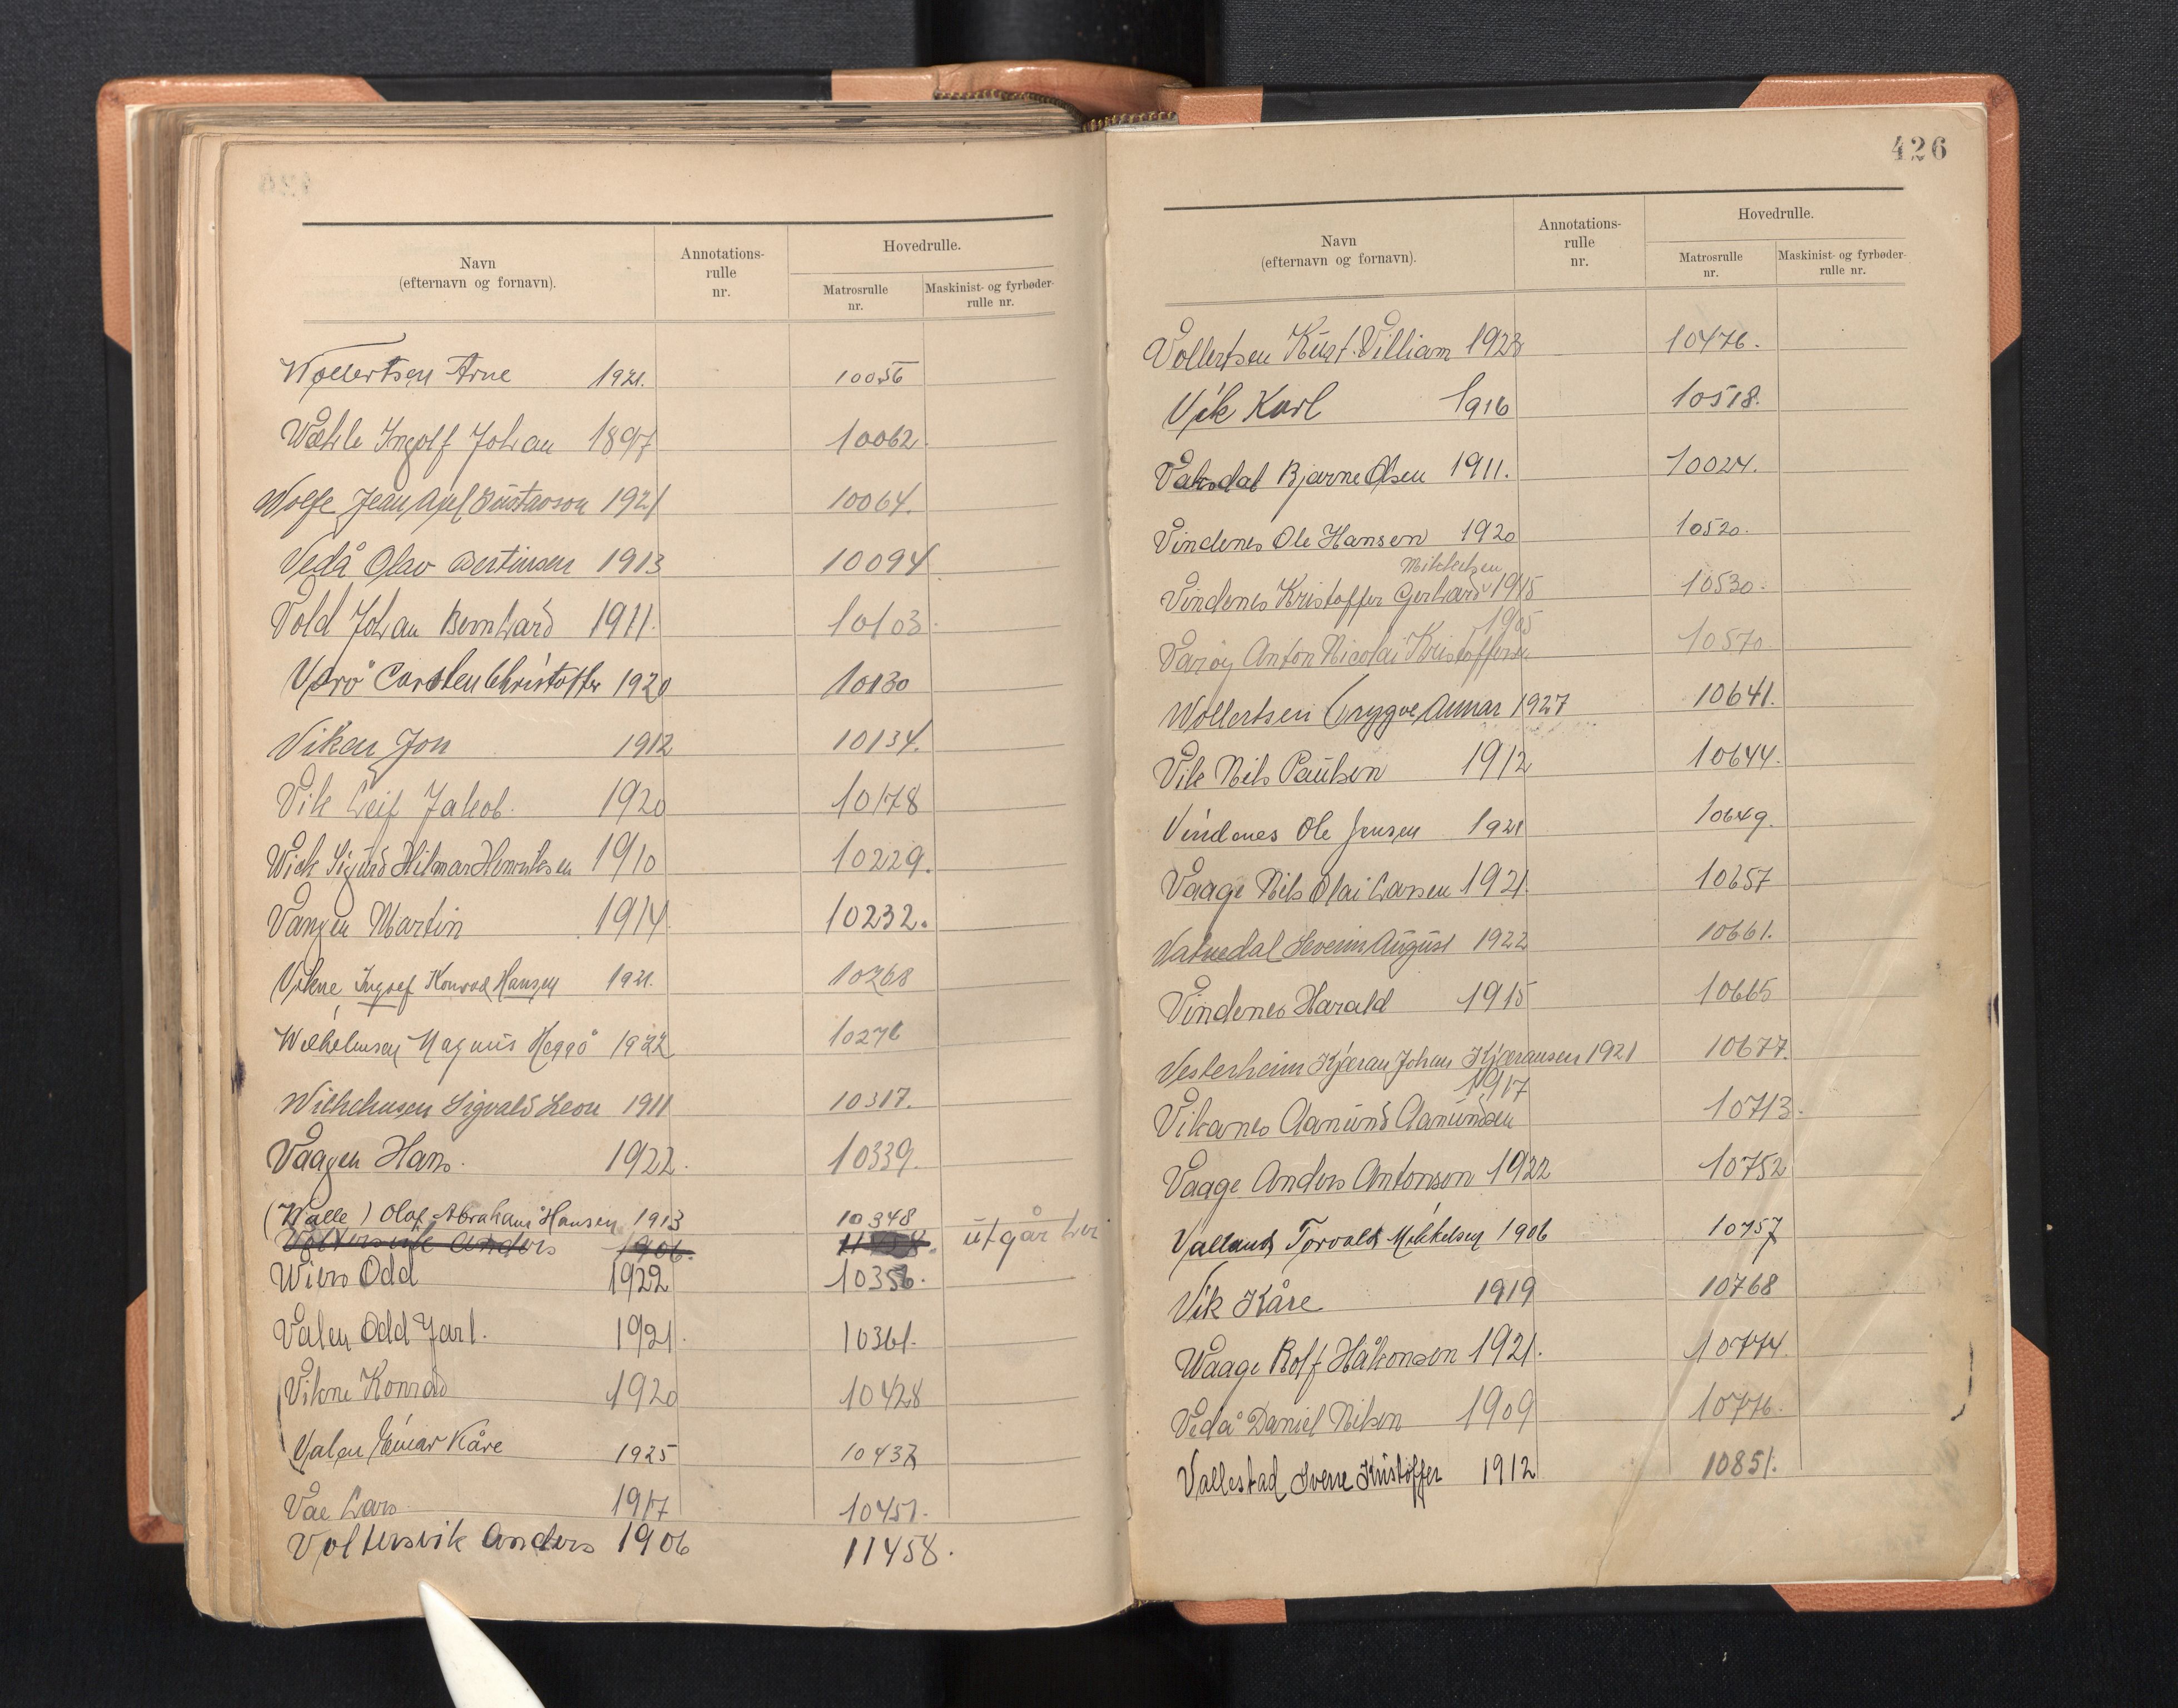 Navn
(efternavn og fornavn).
Annotations-
rulle
nr.
Hovedrulle.
Matrosrulle
nr.
Maskinist- og fyrbøder-
rulle nr.
Wollertsen Arne 1921. 10056
Wæhle Ingolf Johan 1897 10062.
Wolfe Jean Axel Gustavson 1921 10064.
Vedå Olav Bertinsen 1913 10094.
Vold Johan Bernhard 1911. 10103.
Værø Carsten Christoffer 1920 10130
Viken Jon 1912 10134.
Vik Leif Jakob. 1920 10178
Wick Sigurd Hilmar Henriksen 1910 10229.
Vangen Martin 1914. 10232.
Vikne, Ingolf Konrad Hansen 1921. 10268
Wilhelmsen Magnus Heggø 1922 10276
Wilhelmsen Sigvald Leon 1911 10317.
Vaagen Hans. 1922. 10339.
(Walle) Olaf Abraham Hansen 1913 10348
Voltersvik Anders 1906. utgår her
Wiers Odd 1922 10356.
Valen Odd Jarl. 1921. 10361.
Vikne Konrad 1920 10428
Valen Einar Kåre 1925 10437
Vae Lars 1917 10451.
Voltersvik Anders 1906 11458.
426
Navn
(efternavn og fornavn).
Annotations-
rulle
nr.
Hovedrulle.
Matrosrulle
nr.
Maskinist- og fyrbøder-
rulle nr.
Vollertsen Kurt. Villiam 1923 10476.
Vik Karl 1916 10518.
Vaksdal Bjarne Olsen 1911. 10024.
Vindenes Ole Hansen 1920 10520.
Mikkelsen
Vindenes Kristoffer Gerhard 1915 10530.
1905
Varøy Anton Nicolai Kristoffersen 10570.
Wollertsen Trygve Annar 1927 10641.
Vik Nils Paulsen 1912 10644.
Vindenes Ole Jensen 1921 10649.
Vaage Nils Olai Larsen 1921. 10657
Vatnedal Severin August 1922 10661.
Vindenes Harald 1915 10665
Vesterheim Kjæran Johan Kjæransen 1921 10677.
1917
Vikanes Aamund Aamundsen 10713.
Vaage Anders Antonsen 1922 10752
Valland Torvald Mikkelsen 1906 10757
Vik Kåre 1919 10768
Waage Rolf Håkonsen 1921. 10774.
Vedå Daniel Nilsen 1909 10776.
Vallestad Sverre Kristoffer 1912 10851.